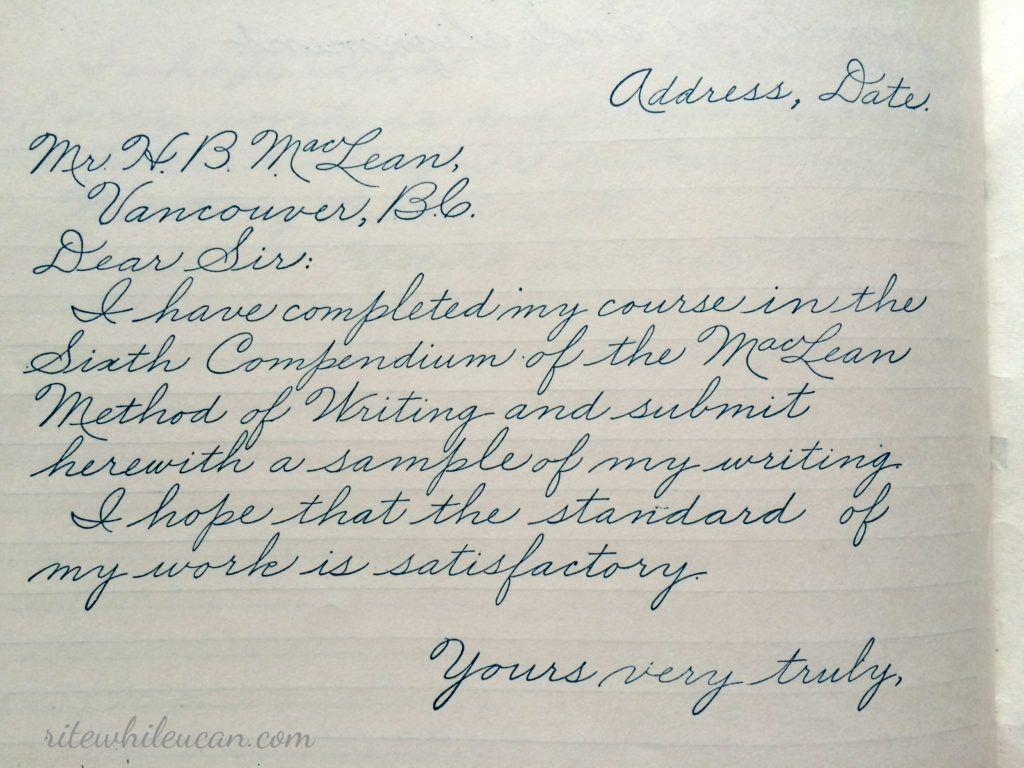 Address, Date.
Mr. H. B. MacLean,
Vancouver, B.C.
Dear Sir:
I have completed my course in the
Sixth Compendium of the MacLean
Method of Writing and submit
herewith a sample of my writing
I hope that the standard of
my work is satisfactory.
Yours very truly,
ritewhileucan.com